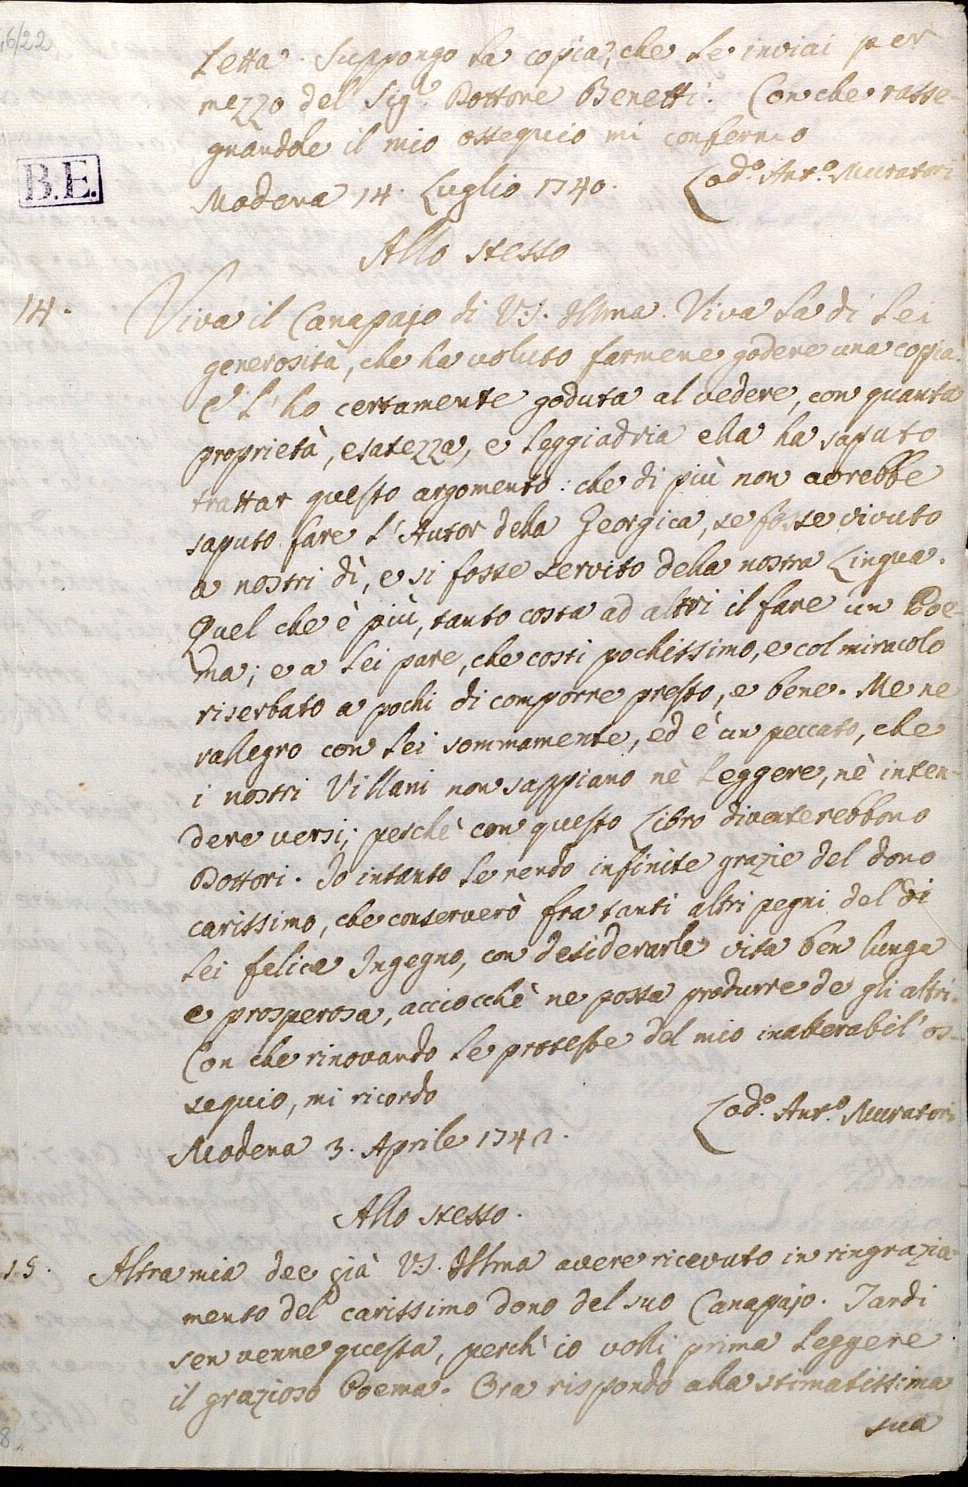 46/22
letta. Suppongo la copia, che le inviai per
mezzo del Sig.r Dottore Benetti. Con che rasse-
gnandole il mio ossequio mi confermo
B.E.
Modena 14. Luglio 1740. Lod.o Ant.o Muratori
Allo stesso
14. Viva il Canapajo di V.S. Illma. Viva la di Lei
generosità, che ha voluto farmene godere una copia.
E l'ho certamente goduta al vedere, con quanta
proprietà, esatezza, e leggiadria ella ha saputo
trattar questo argomento: che di più non avrebbe
saputo fare l'Autor della Georgica, se fosse vivuto
a nostri dì, e si fosse servito della nostra Lingua.
Quel che è più, tanto costa ad altri il fare un Poe-
ma; e a Lei pare, che costi pochissimo, e col miracolo
riserbato a pochi di comporre presto, e bene. Me ne
rallegro con Lei sommamente, ed è un peccato, che
i nostri Villani non sappiano nè leggere, nè inten-
dere versi; perchè con questo Libro diventerebbono
Dottori. Io intanto le rendo infinite grazie del dono
carissimo, che conserverò fra tanti altri pegni del di
Lei felice Ingegno, con desiderarle vita ben lunga
e prosperosa, acciocchè ne possa produrre de gli altri.
Con che rinovando le proteste del mio inalterabil' os-
sequio, mi ricordo
Lod.o Ant.o Muratori
Modena 3. Aprile 1741.
Allo stesso.
15. Altra mia dee già V.S. Illma avere ricevuto in ringrazia-
mento del carissimo dono del suo Canapajo. Tardi
sen venne questa, perch' io volli prima leggere
il grazioso Poema. Ora rispondo alla stimatissima
sua